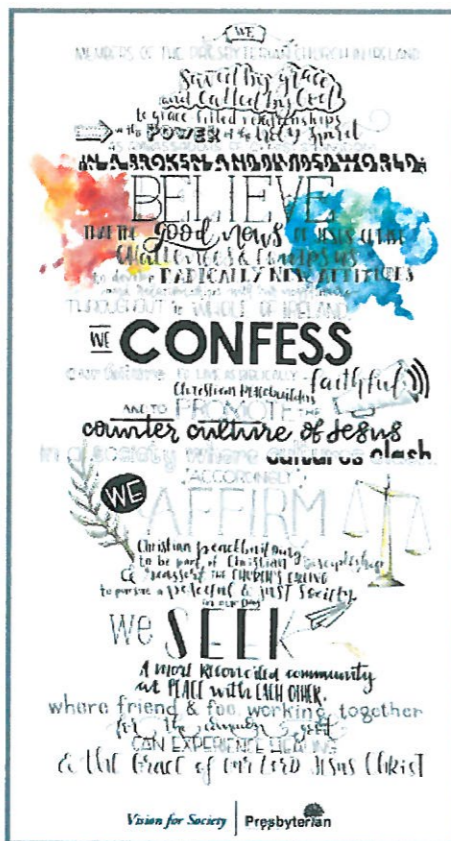 WE
MEMBERS OF THE PRESBYTERIAN CHURCH IN IRELAND
Saved by grace
and Called by God
to grace filled relationships
with the POWER of the Holy Spirit
AS AMBASSADORS OF CHRIST'S KINGDOM
IN A BROKEN AND DIVIDED WORLD
BELIEVE
THAT THE good news OF JESUS CHRIST
Challenges & Empowers us
to develop RADICALLY NEW ATTITUDES
THROUGHOUT the WHOLE OF IRELAND
WE CONFESS
our failure TO LIVE AS BIBLICALLY - faithful
Christian Peacebuilders
AND TO PROMOTE THE
counter culture of Jesus
in a society where cultures clash.
ACCORDINGLY
WE AFFIRM
Christian peacebuilding
to be part of Christian Discipleship
& reassert THE CHURCH'S CALLING
to pursue a peaceful & just society
in our day
We SEEK
A more Reconciled community
at PEACE with EACH OTHER,
where friend & foe, working together
for the common good
CAN EXPERIENCE HEALING
& the Grace of our LORD JESUS CHRIST
Vision for Society | Presbyterian